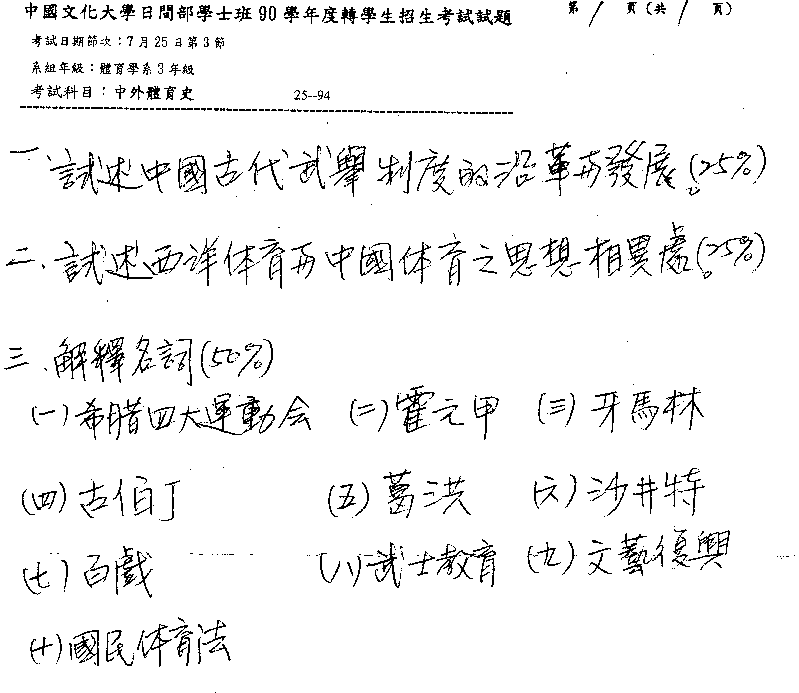 中國文化大學日間部學士班90學年度轉學生招生考試試題 第 1 頁(共 1 頁)
考試日期節次：7月25日第3節
系組年級：體育學系3年級
考試科目：中外體育史 25--94
一、試述中國古代武舉制度的沿革與發展。(25%)
二、試述西洋体育与中國体育之思想相異處。(25%)
三、解釋名詞(50%)
(一)希腊四大運動会 (二)霍元甲 (三)牙馬林
(四)古伯丁 (五)葛洪 (六)沙井特
(七)百戲 (八)武士教育 (九)文藝復興
(十)國民体育法